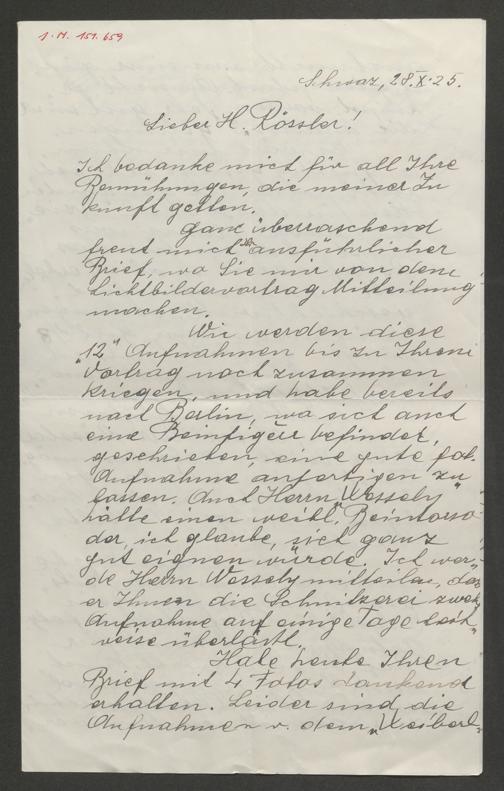 J. N. 151.659
Schwaz, 28.X.25.
Lieber H. Rössler!
Ich bedanke mich für all Ihre
Bemühungen, die meiner Zu
kunft gelten.
Ganz überraschend
freut mich Ihr ausführlicher
Brief, wo Sie mir von dem
Lichtbildervortrag Mitteilung
machen.
Wir werden diese
"12" Aufnahmen bis zu Ihrem
Vortrag noch zusammen
kriegen, und habe bereits
nach Berlin, wo sich auch
eine Beinfigur befindet,
geschrieben, eine gute fot.
Aufnahme anfertigen zu
lassen. Auch Herrn Wessely
hätte einen weibl. Beintorso
der, ich glaube, sich ganz
gut eignen würde. Ich wer-
de Herrn Wessely mitteilen, das
er Ihnen die Schnitzerei zwecks
Aufnahme auf einige Tage leih
weise überläßt.
Habe heute Ihren
Brief mit 4 Fotos dankend
erhalten. Leider sind die
Aufnahmen v. dem "Weiberl"